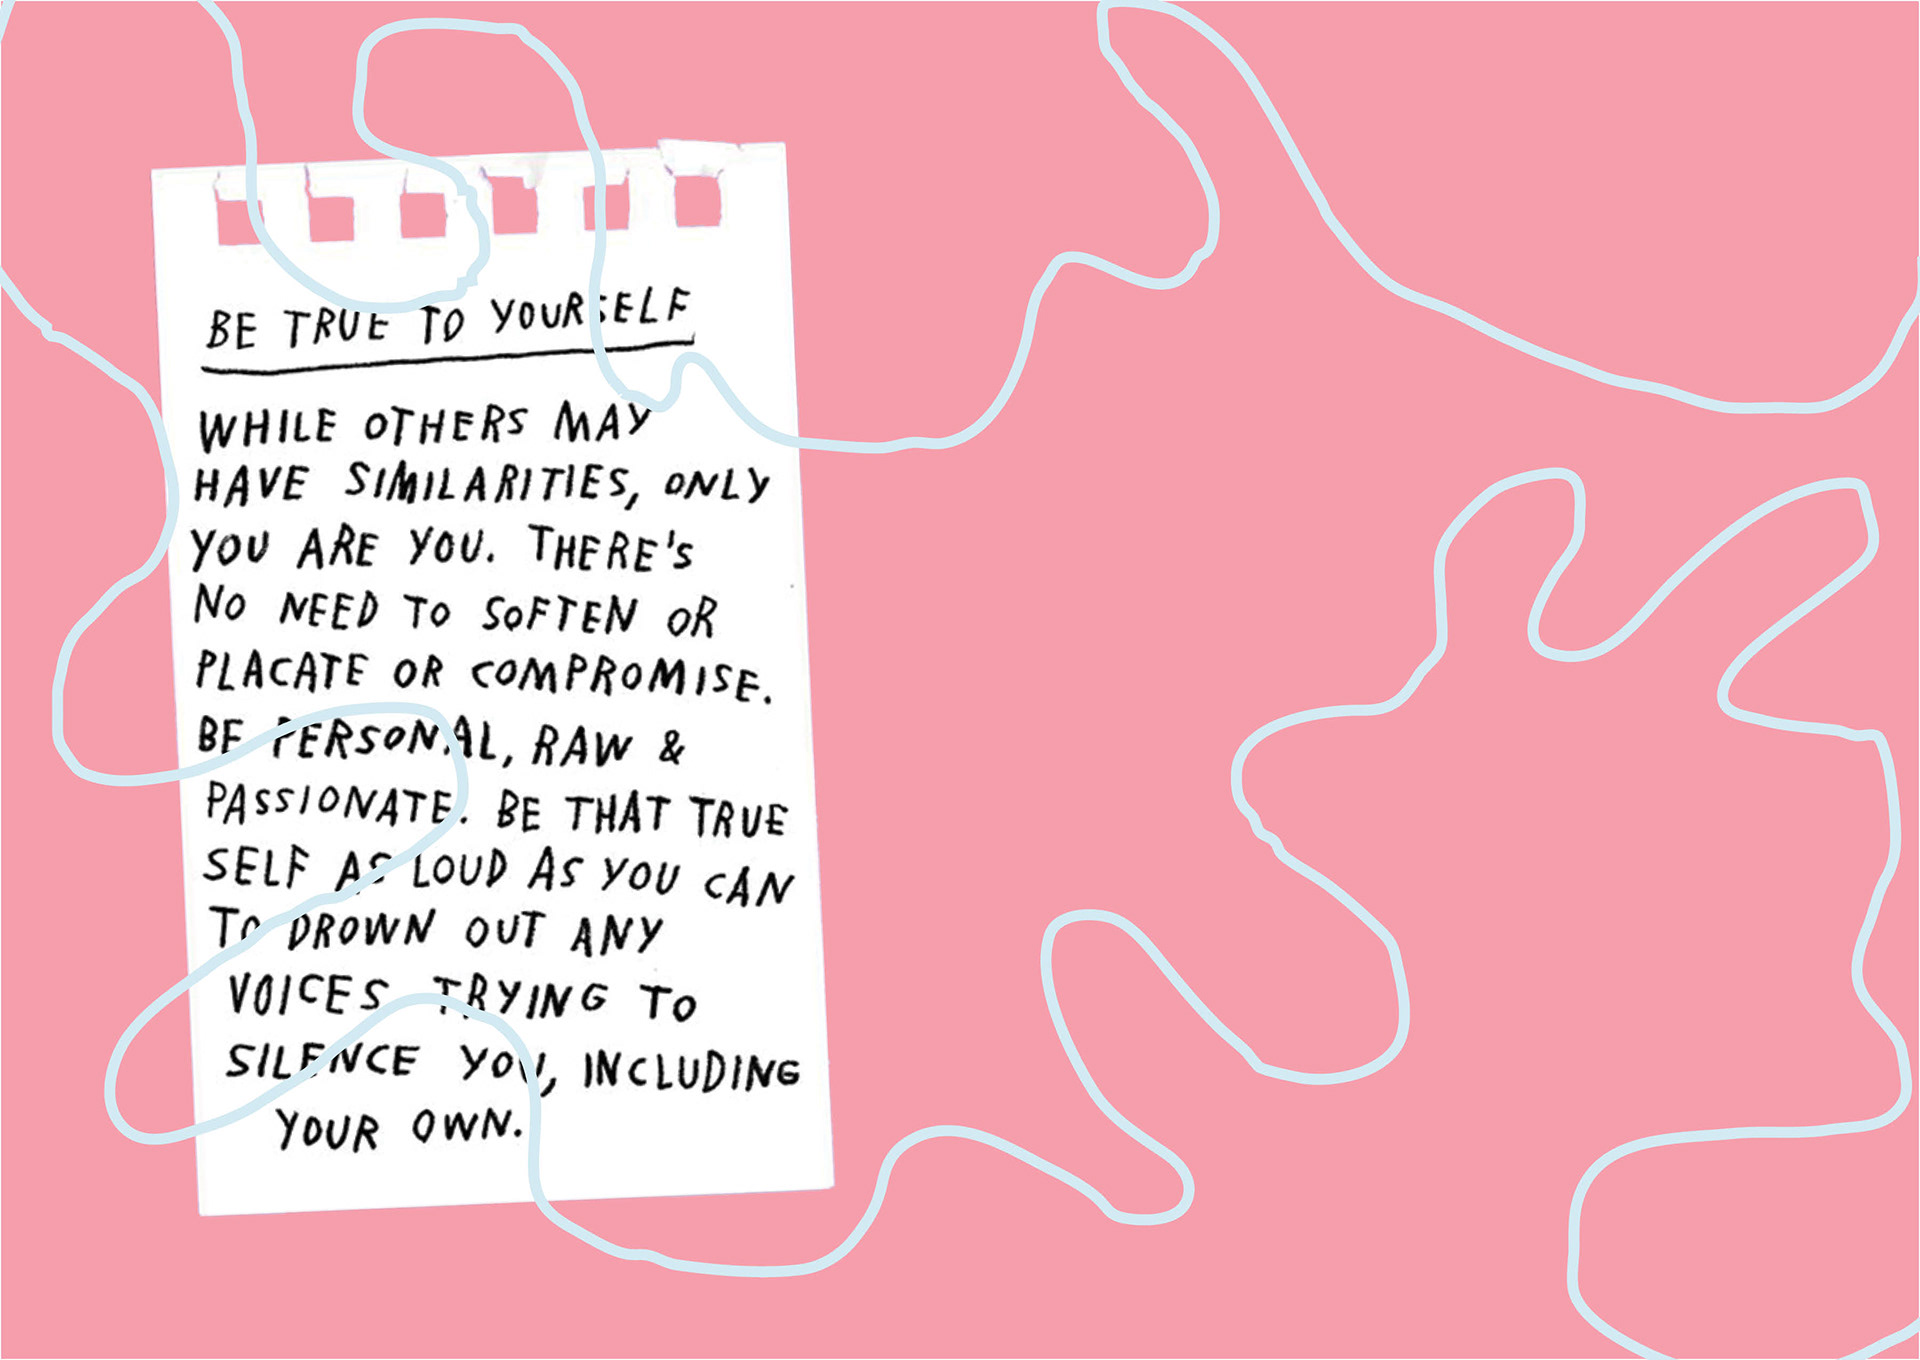 BE TRUE TO YOURSELF
WHILE OTHERS MAY
HAVE SIMILARITIES, ONLY
YOU ARE YOU. THERE'S
NO NEED TO SOFTEN OR
PLACATE OR COMPROMISE.
BE PERSONAL, RAW &
PASSIONATE. BE THAT TRUE
SELF AS LOUD AS YOU CAN
TO DROWN OUT ANY
VOICES TRYING TO
SILENCE YOU, INCLUDING
YOUR OWN.